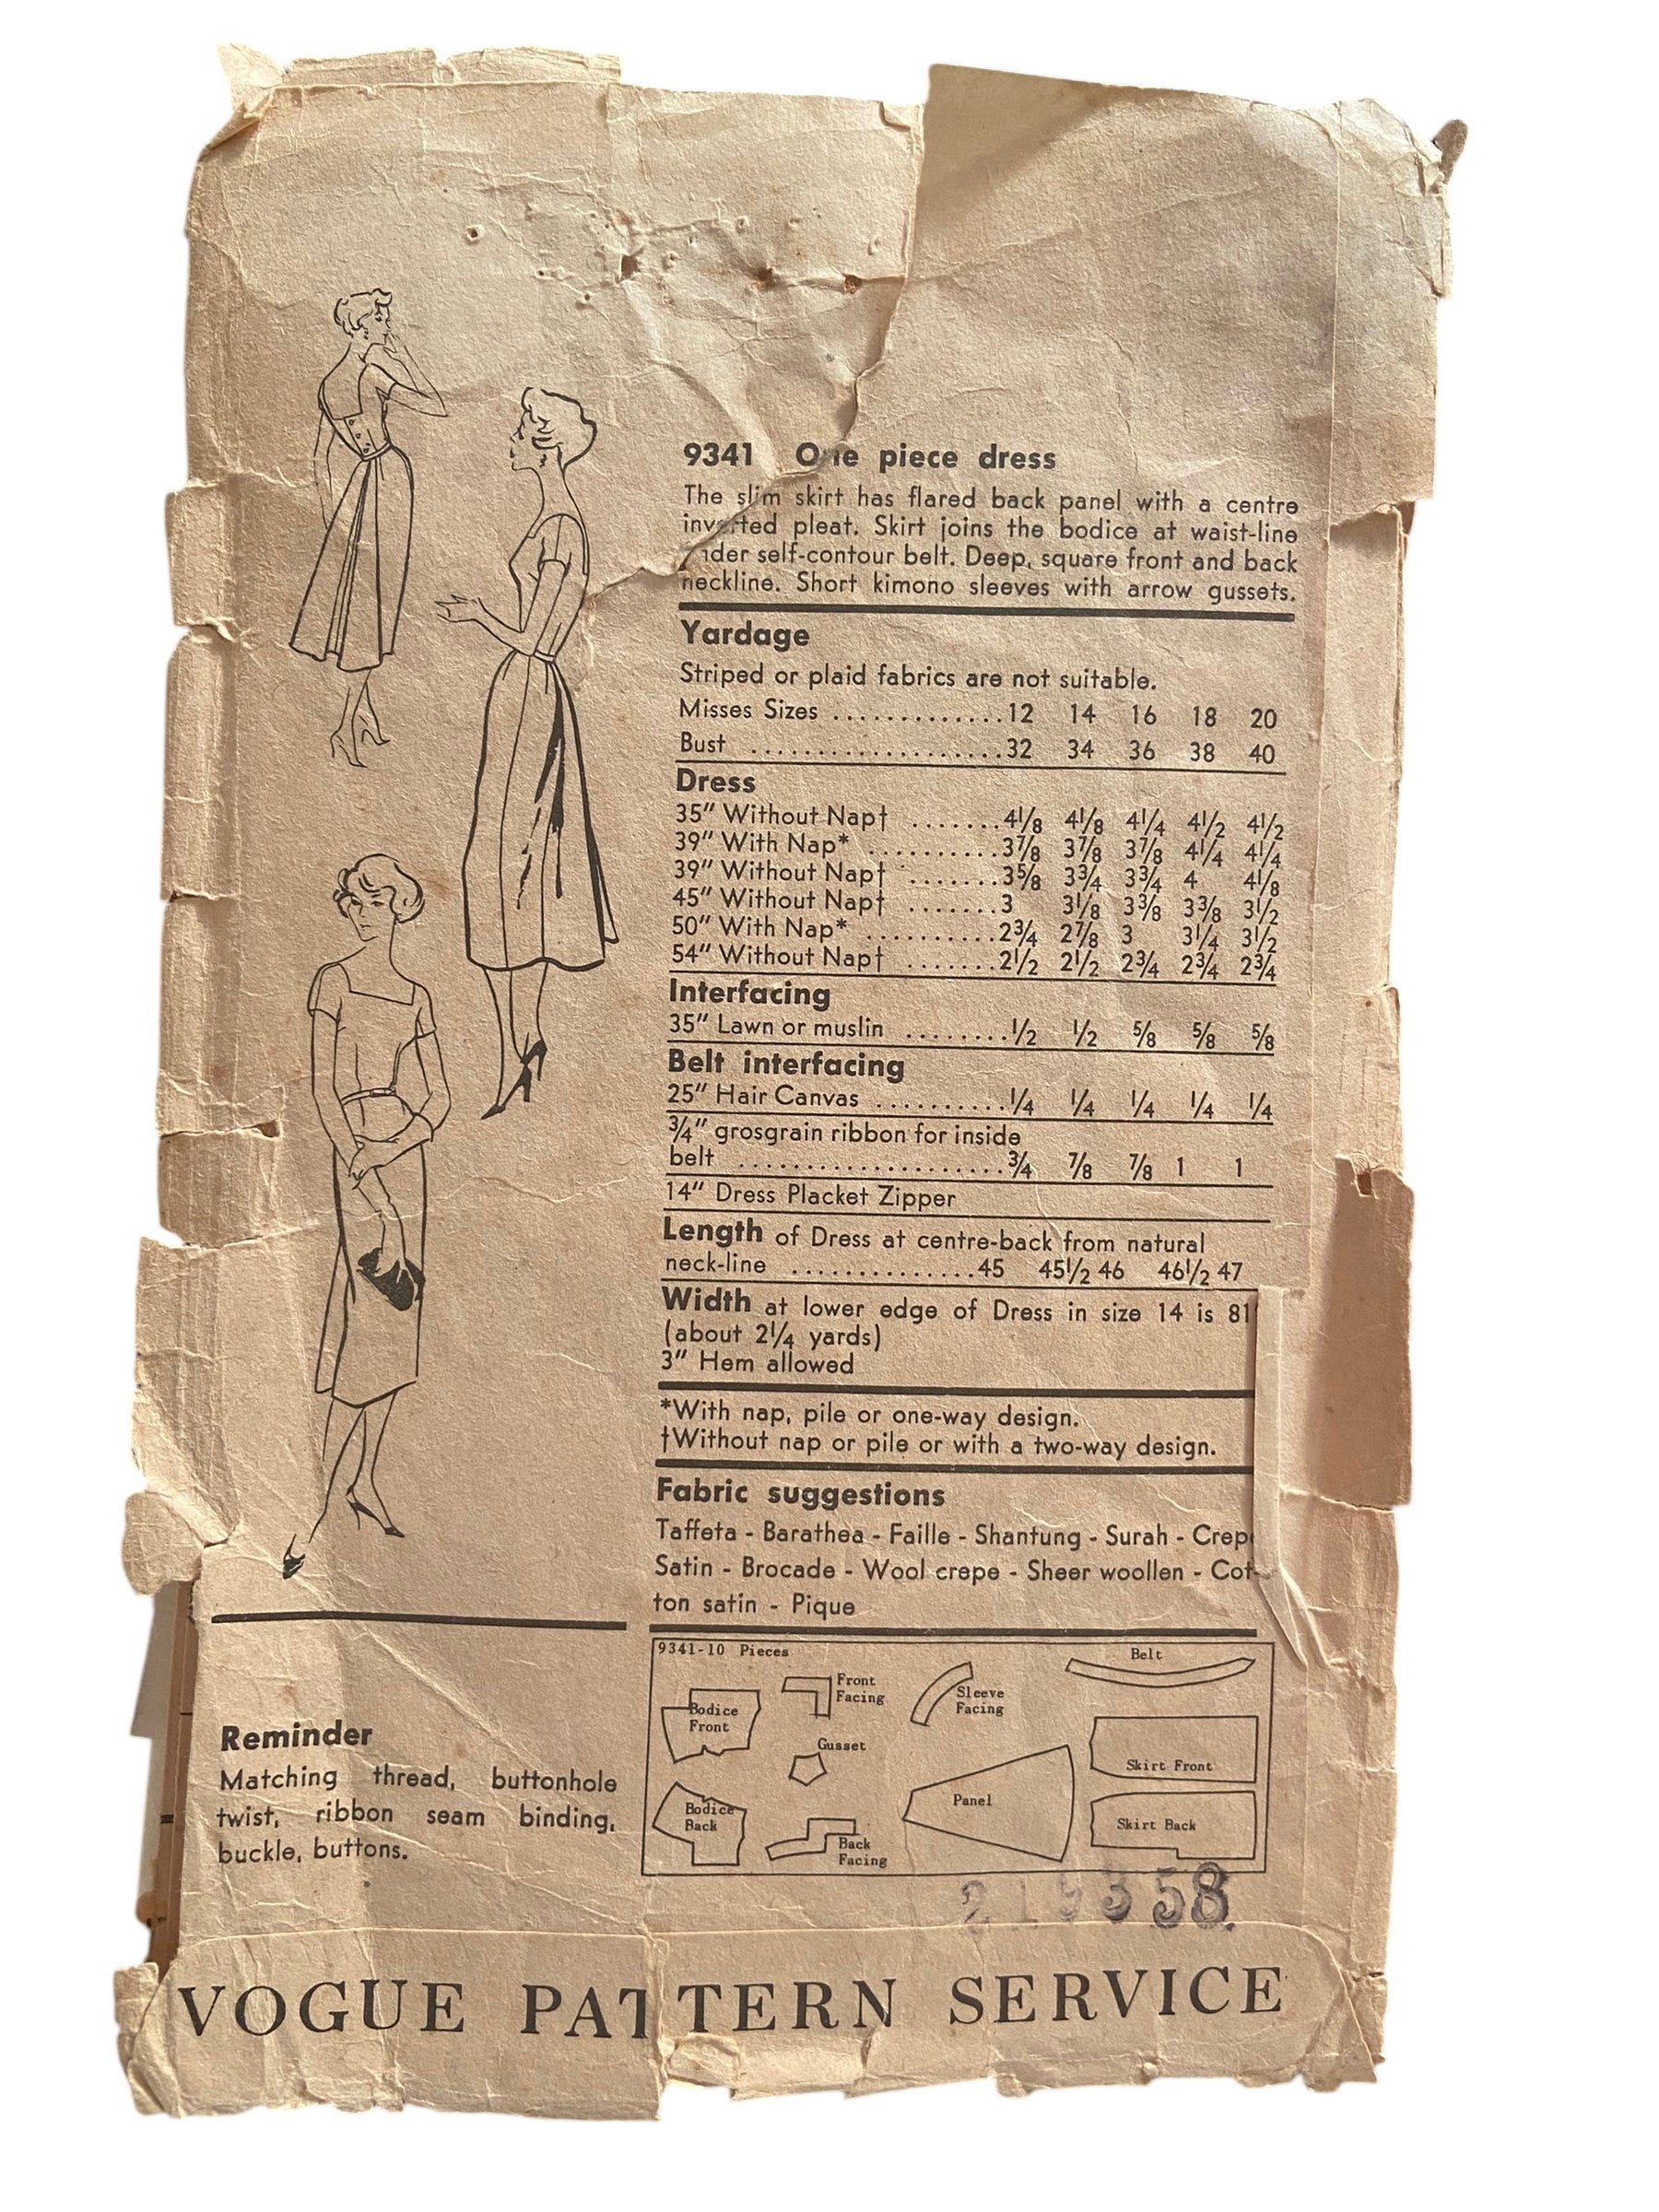 9341 One piece dress
The slim skirt has flared back panel with a centre
inverted pleat. Skirt joins the bodice at waist-line
under self-contour belt. Deep, square front and back
neckline. Short kimono sleeves with arrow gussets.
Yardage
Striped or plaid fabrics are not suitable.
Misses Sizes .............12 14 16 18 20
Bust ....................32 34 36 38 40
Dress
35" Without Nap† .......4 1/8 4 1/8 4 1/4 4 1/2 4 1/2
39" With Nap* ..........3 7/8 3 7/8 3 7/8 4 1/4 4 1/4
39" Without Nap† .......3 5/8 3 3/4 3 3/4 4 4 1/8
45" Without Nap† .......3 3 1/8 3 3/8 3 3/8 3 1/2
50" With Nap* ..........2 3/4 2 7/8 3 3 1/4 3 1/2
54" Without Nap† .......2 1/2 2 1/2 2 3/4 2 3/4 2 3/4
Interfacing
35" Lawn or muslin ........1/2 1/2 5/8 5/8 5/8
Belt interfacing
25" Hair Canvas ..........1/4 1/4 1/4 1/4 1/4
3/4" grosgrain ribbon for inside
belt .....................3/4 7/8 7/8 1 1
14" Dress Placket Zipper
Length of Dress at centre-back from natural
neck-line ..............45 45 1/2 46 46 1/2 47
Width at lower edge of Dress in size 14 is 81
(about 2 1/4 yards)
3" Hem allowed
*With nap, pile or one-way design.
†Without nap or pile or with a two-way design.
Fabric suggestions
Taffeta - Barathea - Faille - Shantung - Surah - Crepe
Satin - Brocade - Wool crepe - Sheer woollen - Cot-
ton satin - Pique
Reminder
Matching thread, buttonhole
twist, ribbon seam binding,
buckle, buttons.
9341-10 Pieces
Bodice
Front
Front
Facing
Sleeve
Facing
Belt
Gusset
Skirt Front
Bodice
Back
Back
Facing
Panel
Skirt Back
VOGUE PATTERN SERVICE